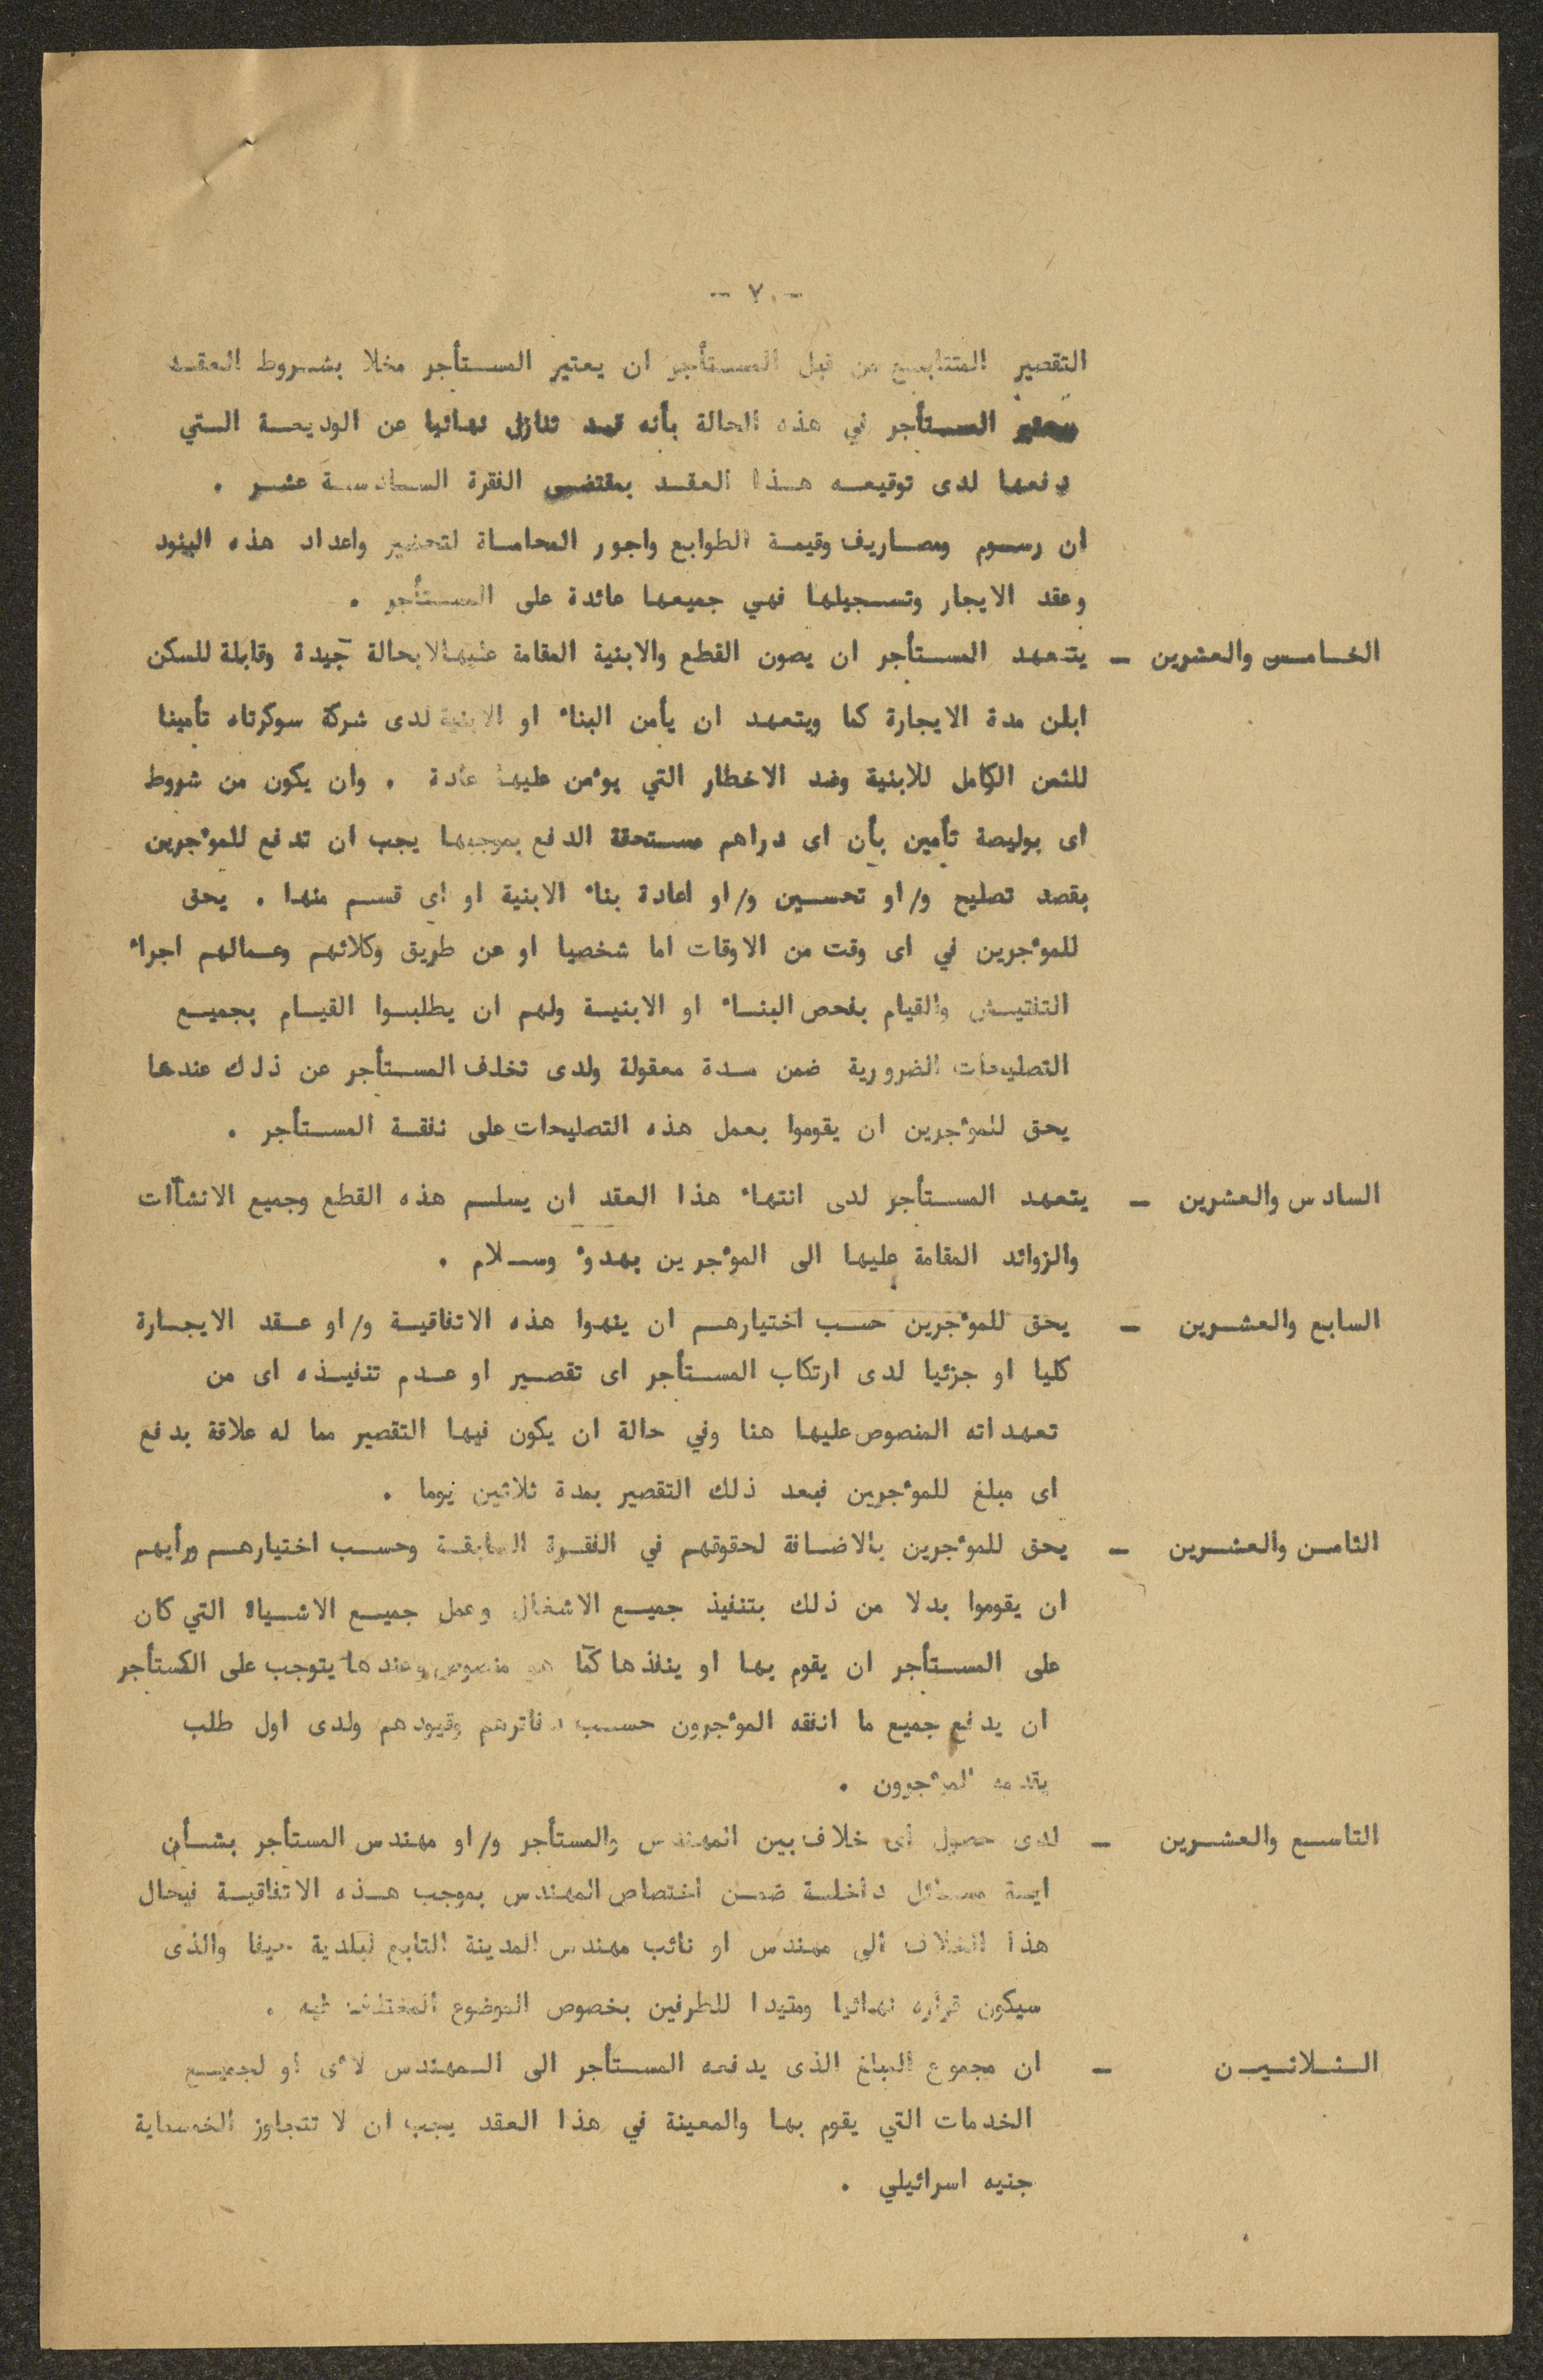 - ٧ -
التقصير المتتابع من قبل المستأجر ان يعتبر المستأجر مخلا بشروط العقد
المستأجر في هذه الحالة بأنه قد تنازل نهائيا عن الوديعة التي
دفعها لدى توقيعه هذا العقد بمقتضى الفقرة السادسة عشر .
ان رسوم ومصاريف وقيمة الطوابع واجور المحاماة لتحضير واعداد هذه البنود
وعقد الايجار وتسجيلها فهي جميعها عائدة على المستأجر .
الخامس والعشرين - يتعهد المستأجر ان يصون القطع والابنية المقامة عليها بحالة جيدة وقابلة للسكن
ابان مدة الايجارة كما ويتعهد ان يأمن البناء او الابنية لدى شركة سوكرتاه تأمينا
للثمن الكامل للابنية وضد الاخطار التي يؤمن عليها عادة . وان يكون من شروط
اى بوليصة تأمين بأن اى دراهم مستحقة الدفع بموجبها يجب ان تدفع للمؤجرين
بقصد تصليح و/او تحسين و/او اعادة بناء الابنية او اى قسم منها . يحق
للمؤجرين في اى وقت من الاوقات اما شخصيا او عن طريق وكلائهم وعمالهم اجراء
التفتيش والقيام بفحص البناء او الابنية ولهم ان يطلبوا القيام بجميع
التصليحات الضرورية ضمن مدة معقولة ولدى تخلف المستأجر عن ذلك عندها
يحق للمؤجرين ان يقوموا بعمل هذه التصليحات على نفقة المستأجر .
السادس والعشرين - يتعهد المستأجر لدى انتهاء هذا العقد ان يسلم هذه القطع وجميع الانشاآت
والزوائد المقامة عليها الى المؤجرين بهدوء وسلام .
السابع والعشرين - يحق للمؤجرين حسب اختيارهم ان ينهوا هذه الاتفاقية و/او عقد الايجارة
كليا او جزئيا لدى ارتكاب المستأجر اى تقصير او عدم تنفيذه اى من
تعهداته المنصوص عليها هنا وفي حالة ان يكون فيها التقصير مما له علاقة بدفع
اى مبلغ للمؤجرين فبعد ذلك التقصير بمدة ثلاثين يوما .
الثامن والعشرين - يحق للمؤجرين بالاضافة لحقوقهم في الفقرة السابقة وحسب اختيارهم ورأيهم
ان يقوموا بدلا من ذلك بتنفيذ جميع الاشغال وعمل جميع الاشياء التي كان
على المستأجر ان يقوم بها او ينفذها كما هو منصوص وعندها يتوجب على المستأجر
ان يدفع جميع ما انفقه المؤجرون حسب دفاترهم وقيودهم ولدى اول طلب
يقدمه المؤجرون .
التاسع والعشرين - لدى حصول اى خلاف بين المهندس والمستأجر و/او مهندس المستأجر بشأن
اية مسائل داخلة ضمن اختصاص المهندس بموجب هذه الاتفاقية فيحال
هذا الخلاف الى مهندس او نائب مهندس المدينة التابع لبلدية حيفا والذى
سيكون قراره نهائيا ومقيدا للطرفين بخصوص الموضوع المختلف فيه .
الثلاثين - ان مجموع المبلغ الذى يدفعه المستأجر الى المهندس لاى او لجميع
الخدمات التي يقوم بها والمعينة في هذا العقد يجب ان لا تتجاوز الخمسماية
جنيه اسرائيلي .